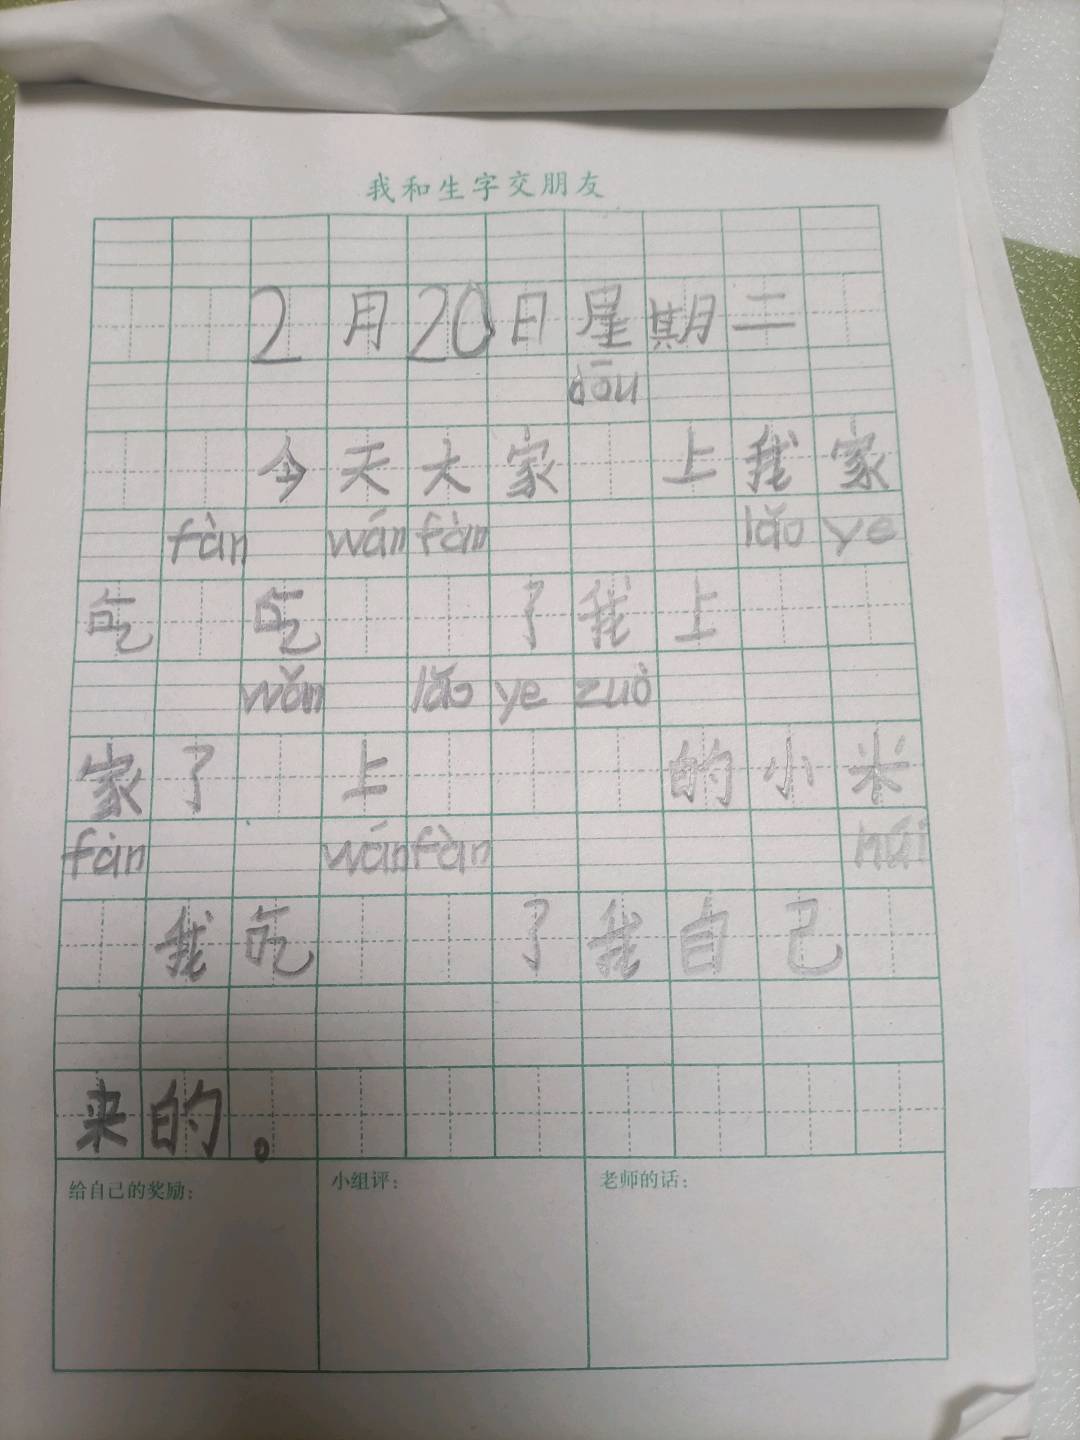 我和生字交朋友
2月20日星期二
dōu
今天大家 上我家
fàn wán fàn lǎo ye
吃 吃 了我上
wǎn lǎo ye zuò
家了 上 的小米
fàn wán fàn húi
我吃 了我自己
来的。
给自己的奖励：
小组评：
老师的话：